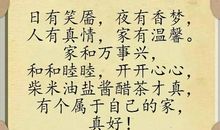 日有笑靥，夜有香梦，
人有真情，家有温馨。
家和万事兴，
和和睦睦，开开心心，
柴米油盐酱醋茶才真，
有个属于自己的家，
真好！